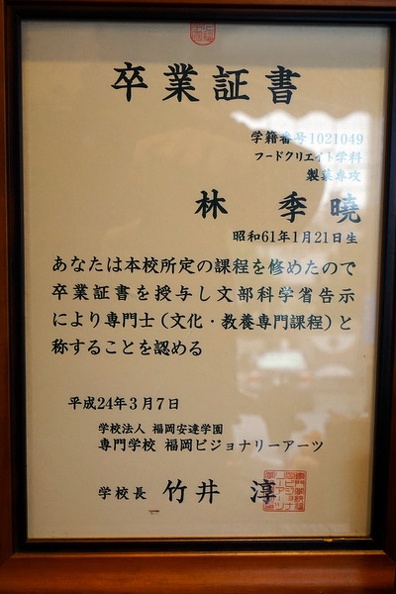 卒業証書
学籍番号1021049
フードクリエイト学科
製菓専攻
林 季暁
昭和61年1月21日生
あなたは本校所定の課程を修めたので
卒業証書を授与し文部科学省告示
により専門士（文化・教養専門課程）と
称することを認める
平成24年3月7日
学校法人 福岡安達学園
専門学校 福岡ビジョナリーアーツ
学校長 竹井 淳